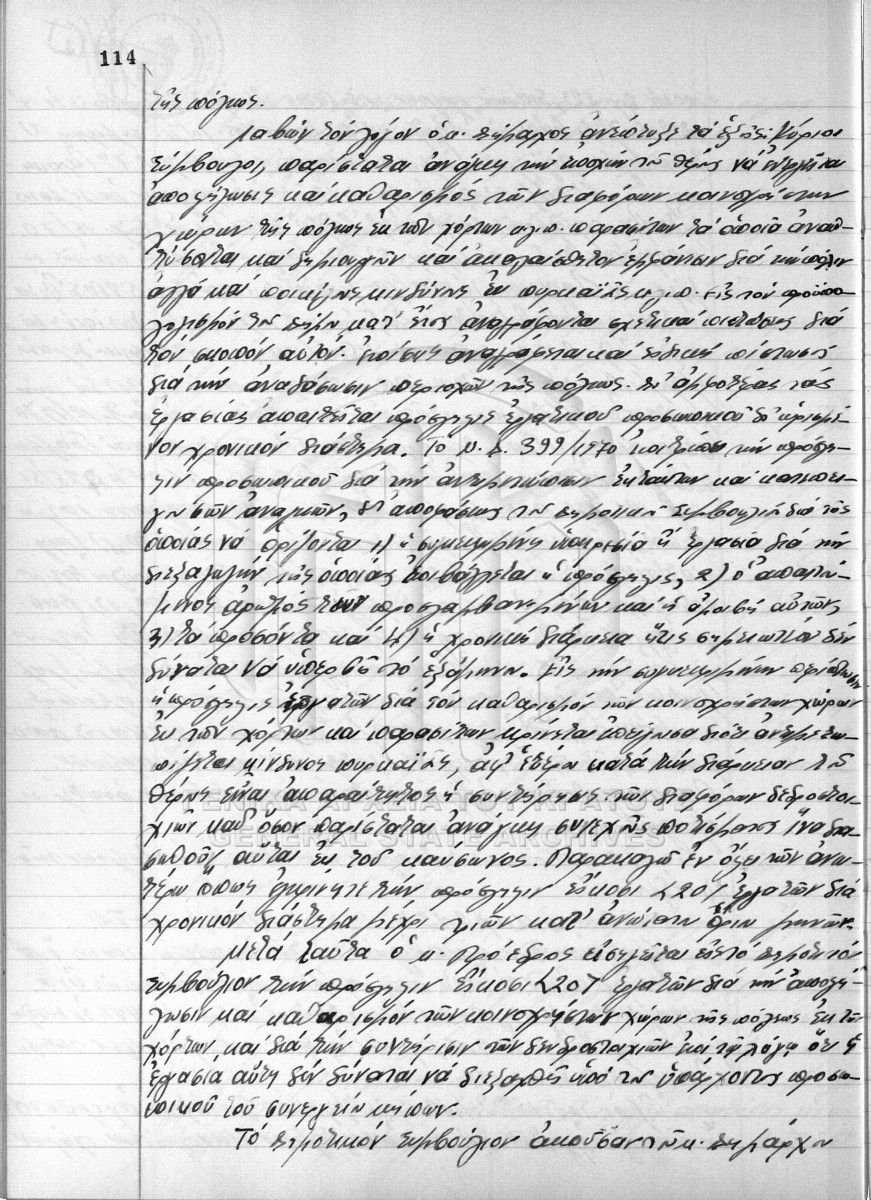 114
τῆς πόλεως.
Λαβών τόν λόγον ὁ κ. Δήμαρχος ἀνέπτυξε τά ἑξῆς: Κύριοι
Σύμβουλοι, παρίσταται ἀνάγκη τήν ἐποχήν τοῦ θέρους νά ἐνεργῆται
ἀποψίλωσις καί καθαρισμός τῶν διαφόρων κοινοχρήστων
χώρων τῆς πόλεως ἐκ τῶν χόρτων κ.λ.π. παρασίτων τά ὁποῖα ἀναπ-
τύσσονται καί δημιουργοῦν καί ἀκαλαίσθητον ἐμφάνισιν διά τήν πόλιν
ἀλλά καί ποικίλους κινδύνους ἐκ πυρκαϊᾶς κ.λ.π. Εἰς τόν προϋπο-
λογισμόν τοῦ Δήμου κατ' ἔτος ἀναγράφονται σχετικαί πιστώσεις διά
τόν σκοπόν αὐτόν. Ἐπίσης ἀναγράφεται καί εἰδική πίστωσις
διά τήν ἀναδάσωσιν περιοχῶν τῆς πόλεως. Δι' ἀμφοτέρας τάς
ἐργασίας ἀπαιτεῖται πρόσληψις ἐργατικοῦ προσωπικοῦ δι' ὡρισμέ-
νον χρονικόν διάστημα. Τό Ν.Δ. 399/1970 ἐπιτρέπει τήν πρόσλη-
ψιν προσωπικοῦ διά τήν ἀντιμετώπισιν ἐκτάκτων καί κατεπει-
γουσῶν ἀναγκῶν, δι' ἀποφάσεως τοῦ Δημοτικοῦ Συμβουλίου διά τῆς
ὁποίας νά ὁρίζονται 1) ἡ συγκεκριμένη ὑπηρεσία ἤ ἐργασία διά τήν
διεξαγωγήν τῆς ὁποίας ἐπιβάλλεται ἡ πρόσληψις, 2) ὁ ἀπαιτού-
μενος ἀριθμός τῶν προσλαμβανομένων καί ἡ ἀμοιβή αὐτῶν,
3) τά προσόντα καί 4) ἡ χρονική διάρκεια ἥτις σημειωτέον δέν
δύναται νά ὑπερβῇ τό ἑξάμηνον. Εἰς τήν συγκεκριμένην περίπτωσιν
ἡ πρόσληψις ἐργατῶν διά τόν καθαρισμόν τῶν κοινοχρήστων χώρων
ἐκ τῶν χόρτων καί παρασίτων κρίνεται ἐπείγουσα διότι ἀντιμετω-
πίζεται κίνδυνος πυρκαϊᾶς, ἀφ' ἑτέρου κατά τήν διάρκειαν τοῦ
θέρους εἶναι ἀπαραίτητος ἡ συντήρησις τῶν διαφόρων δενδροστοι-
χιῶν καθ' ὅσον παρίσταται ἀνάγκη συνεχοῦς ποτίσματος ἵνα δια-
σωθοῦν αὗται ἐκ τοῦ καύσωνος. Παρακαλῶ ἐν ὄψει τῶν ἀνω-
τέρω ὅπως ἐγκρίνητε τήν πρόσληψιν εἴκοσι (20) ἐργατῶν διά
χρονικόν διάστημα μέχρι τριῶν κατ' ἀνώτατον ὅριον μηνῶν.
Μετά ταῦτα ὁ κ. Πρόεδρος εἰσηγεῖται εἰς τό Δημοτικόν
Συμβούλιον τήν πρόσληψιν εἴκοσι (20) ἐργατῶν διά τήν ἀποψί-
λωσιν καί καθαρισμόν τῶν κοινοχρήστων χώρων τῆς πόλεως ἐκ τῶν
χόρτων καί διά τήν συντήρησιν τῶν δενδροστοιχιῶν ἐπί τῷ λόγῳ ὅτι ἡ
ἐργασία αὕτη δέν δύναται νά διεξαχθῇ ὑπό τοῦ ὑπάρχοντος προσω-
πικοῦ τοῦ συνεργείου κήπων.
Τό Δημοτικόν Συμβούλιον ἀκοῦσαν τοῦ κ. Δημάρχου
ΓΕΝΙΚΑ ΑΡΧΕΙΑ ΤΟΥ ΚΡΑΤΟΥΣ
GENERAL STATE ARCHIVES